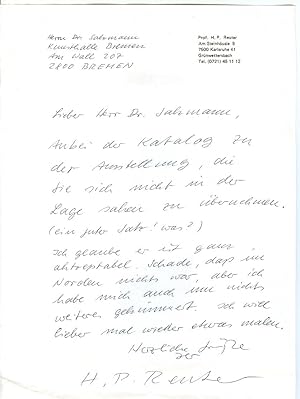 Herrn Dr. Salzmann
Kunsthalle Bremen
Am Wall 207
2800 BREMEN
Prof. H. P. Reuter
7500 Karlsruhe 41
Grünwettersbach
Tel. (0721) 45 11 12
Lieber Herr Dr. Salzmann,
Anbei der Katalog zu
der Ausstellung, die
Sie sich nicht in der
Lage sahen zu übernehmen.
(ein guter Satz! was?)
Ich glaube er ist ganz
aktreptabel. Schade, dass im
Norden nichts war, aber ich
habe mich auch um nichts
weiter gekümmert. Ich will
lieber mal wieder etwas malen.
Herzliche Grüße
H. P. Reuter